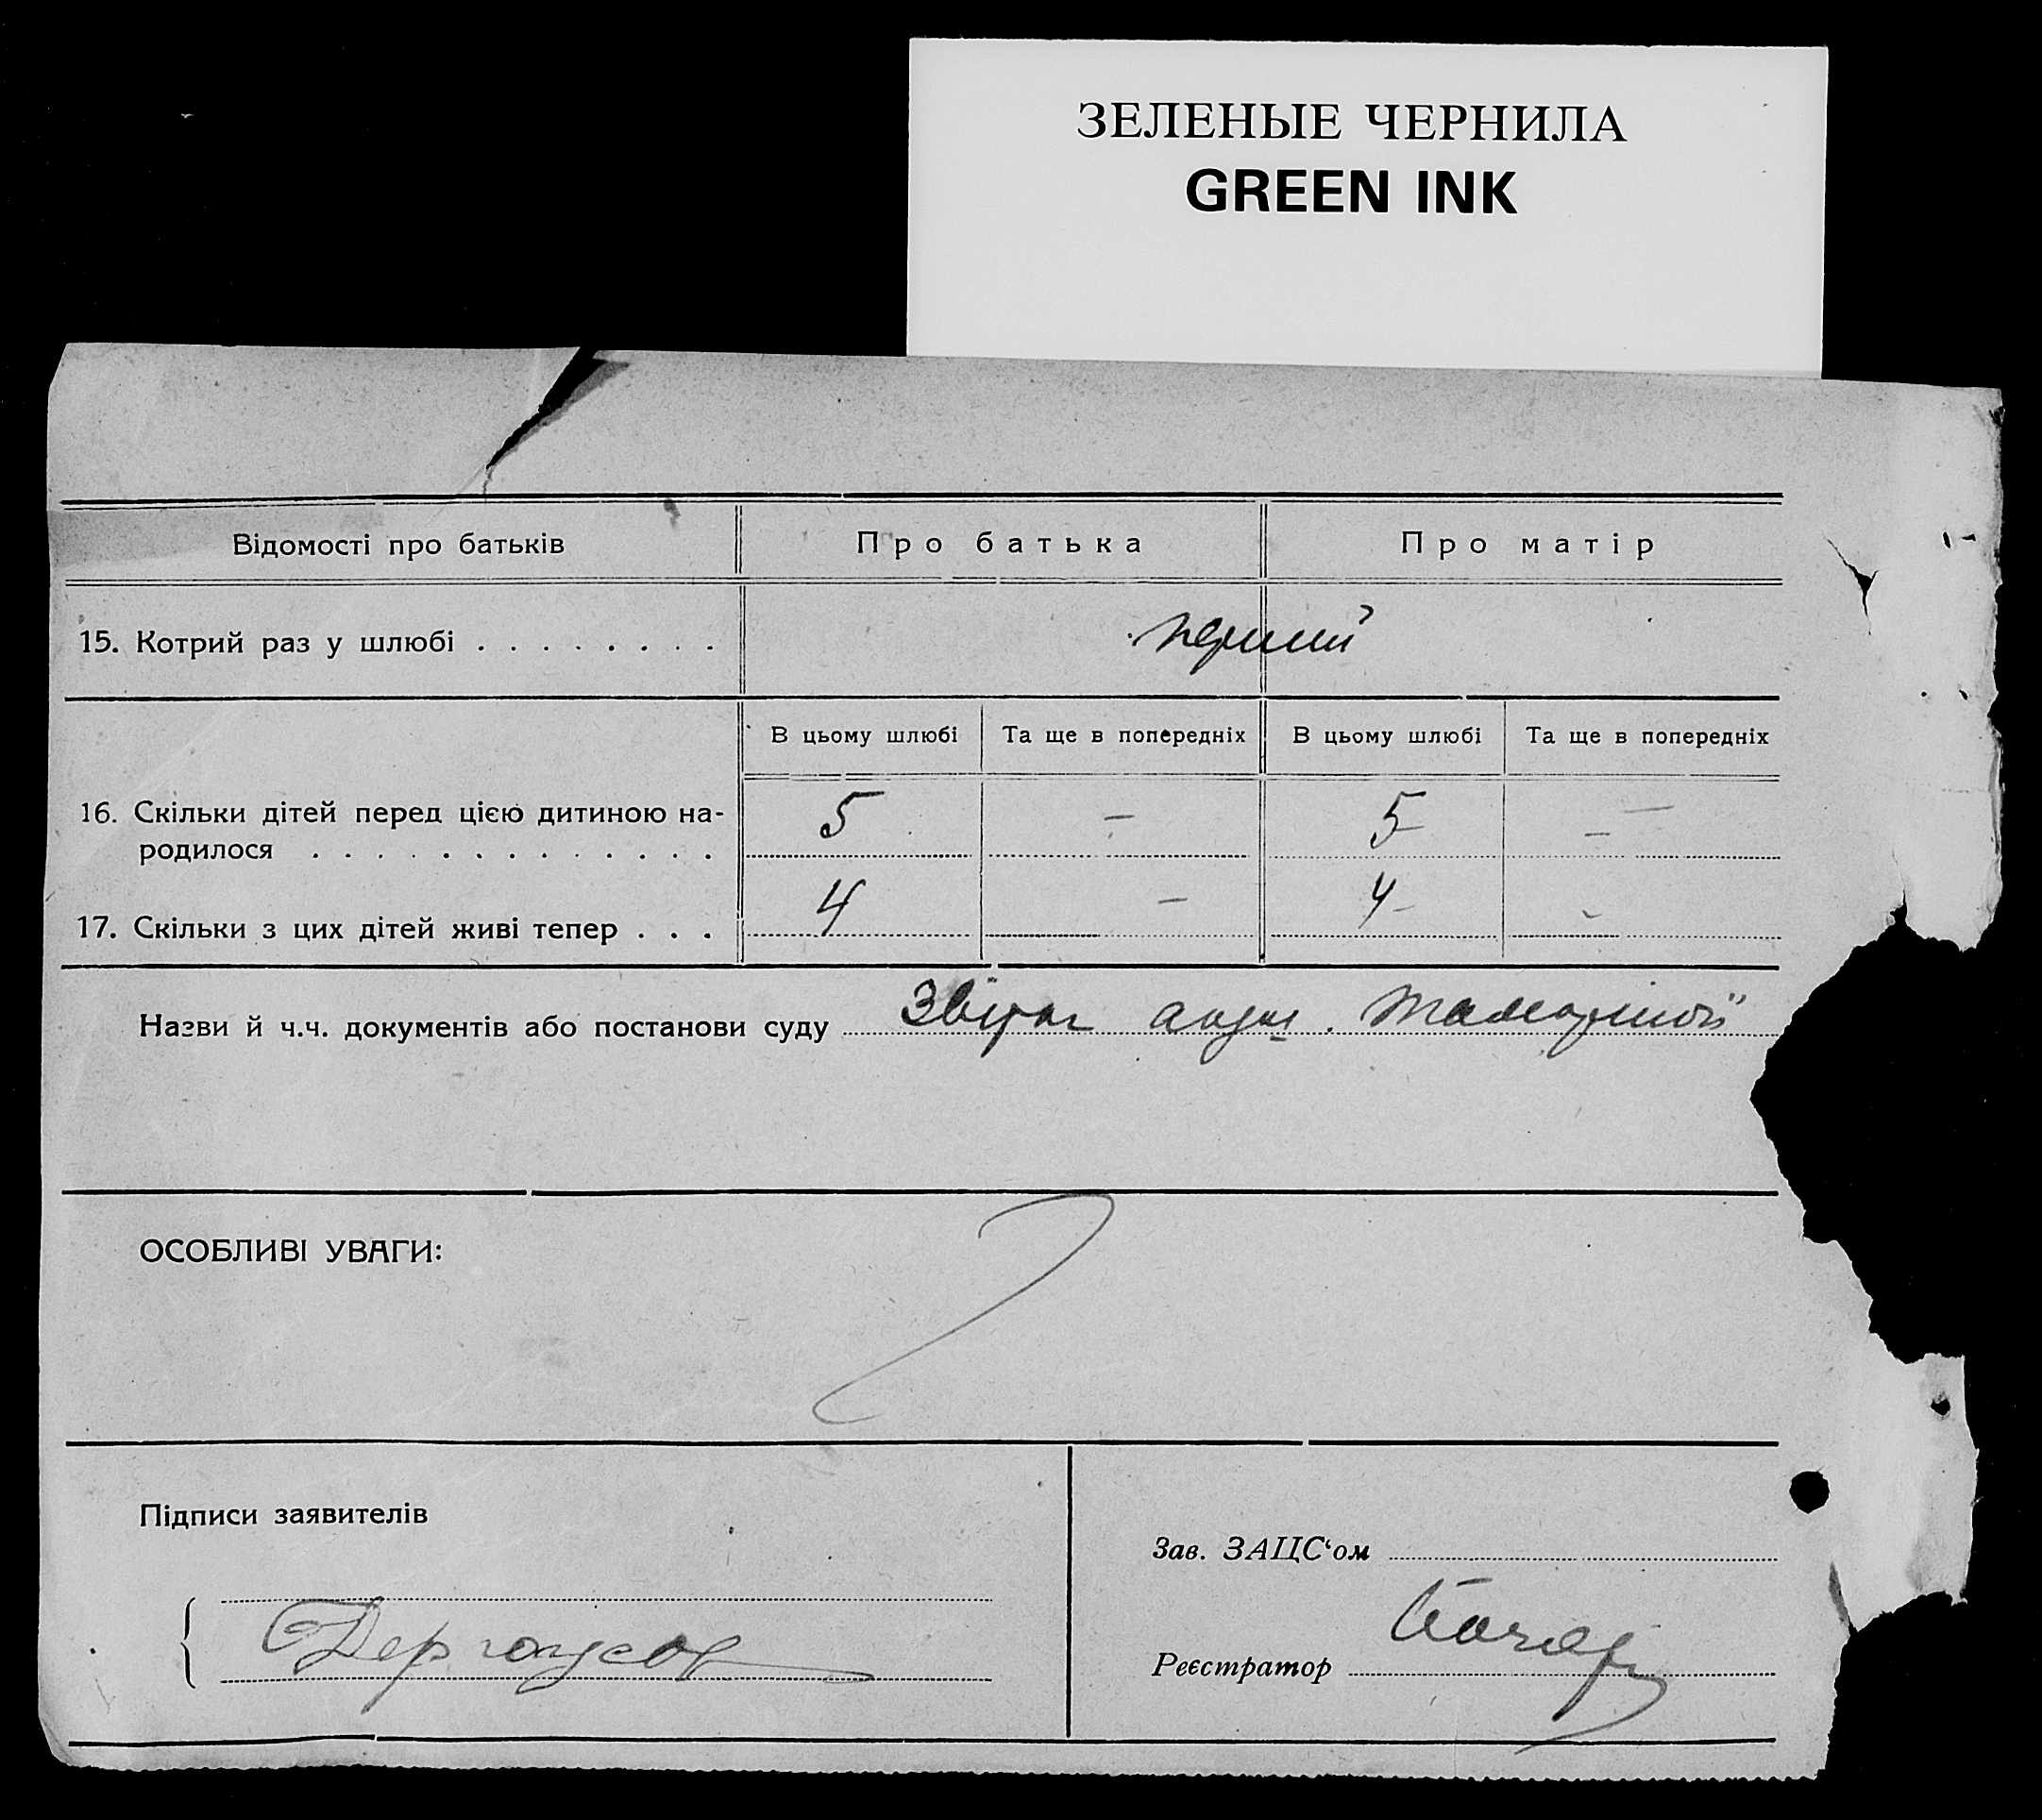 ЗЕЛЕНЫЕ ЧЕРНИЛА
GREEN INK
Відомості про батьків Про батька Про матір
15. Котрий раз у шлюбі . . . . . . . . перший
В цьому шлюбі Та ще в попередніх В цьому шлюбі Та ще в попередніх
16. Скільки дітей перед цією дитиною на- 5 — 5 —
родилося . . . . . . . . . . . . .
17. Скільки з цих дітей живі тепер . . . 4 — 4 -
Назви й ч.ч. документів або постанови суду
ОСОБЛИВІ УВАГИ:
Підписи заявителів
Зав. ЗАЦС‘ом
Реєстратор